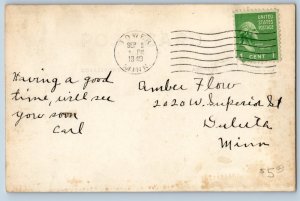 TOWER
SEP
1949
MINN
UNITED STATES
POSTAGE
1 CENT
Having a good
time, will see
you soon
Carl
Amber Flow
2020 W. Superior St
Duluth
Minn
$5